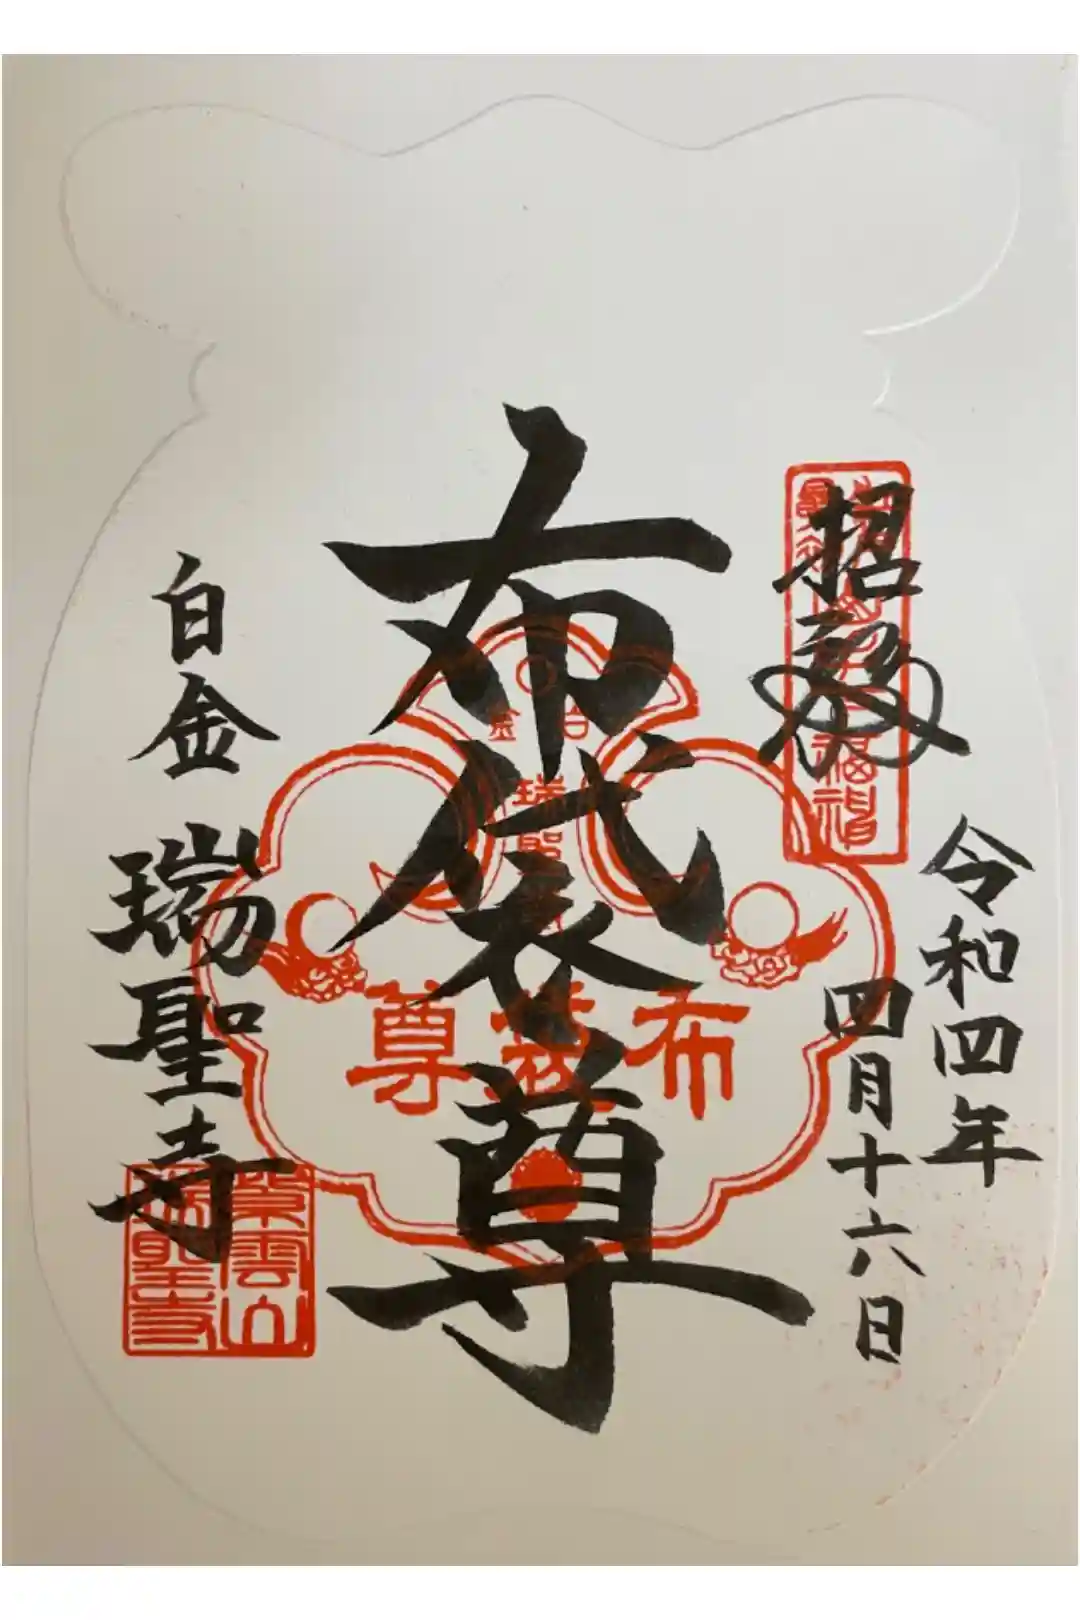 招福
令和四年
四月十六日
布袋尊
白金
瑞聖寺
布袋尊
紫雲山
瑞聖寺